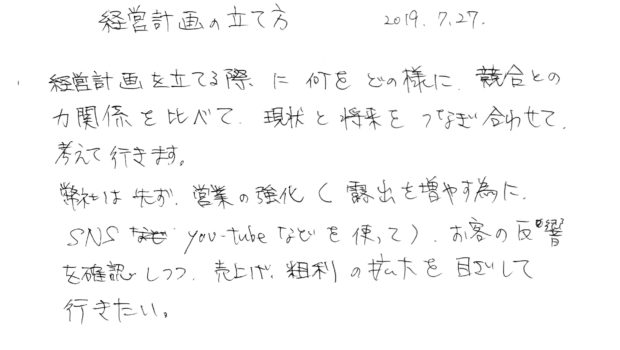 経営計画の立て方 2019.7.27.
経営計画を立てる際に何をどの様に、競合との
力関係を比べて、現状と将来をつなぎ合わせて、
考えて行きます。
弊社は先ず、営業の強化(露出を増やす為に、
SNS you-tubeなどを使って)、お客の反響
を確認しつつ、売上げ、粗利の拡大を目ざして
行きたい。